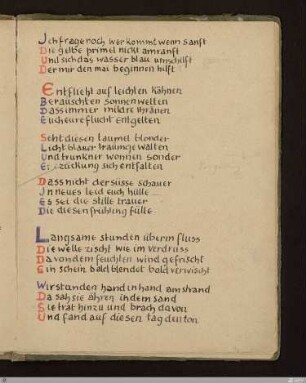 Ich frage noch wer kommt wenn sanft
Die gelbe primel nickt am ranft
Und sich das wasser blau umschilft
Der mir den mai beginnen hilft
Entflieht auf leichten kähnen
Berauschten sonnenwelten
Dass immer mildre thränen
Euch eure flucht entgelten
Seht diesen taumel blonder
Lichtblauer traumgewalten
Und trunkner wonnen sonder
Verzückung sich entfalten
Dass nicht der süsse schauer
In neues leid euch hülle
Es sei die stille trauer
Die diesen frühling fülle
Langsame stunden überm fluss
Die welle zischt wie im verdruss
Da von dem feuchten wind gefrischt
Ein schein bald blendet bald verwischt
Wir standen hand in hand am strand
Da sah sie ähren in dem sand
Sie trat hinzu und brach davon
Und fand auf diesen tag den ton